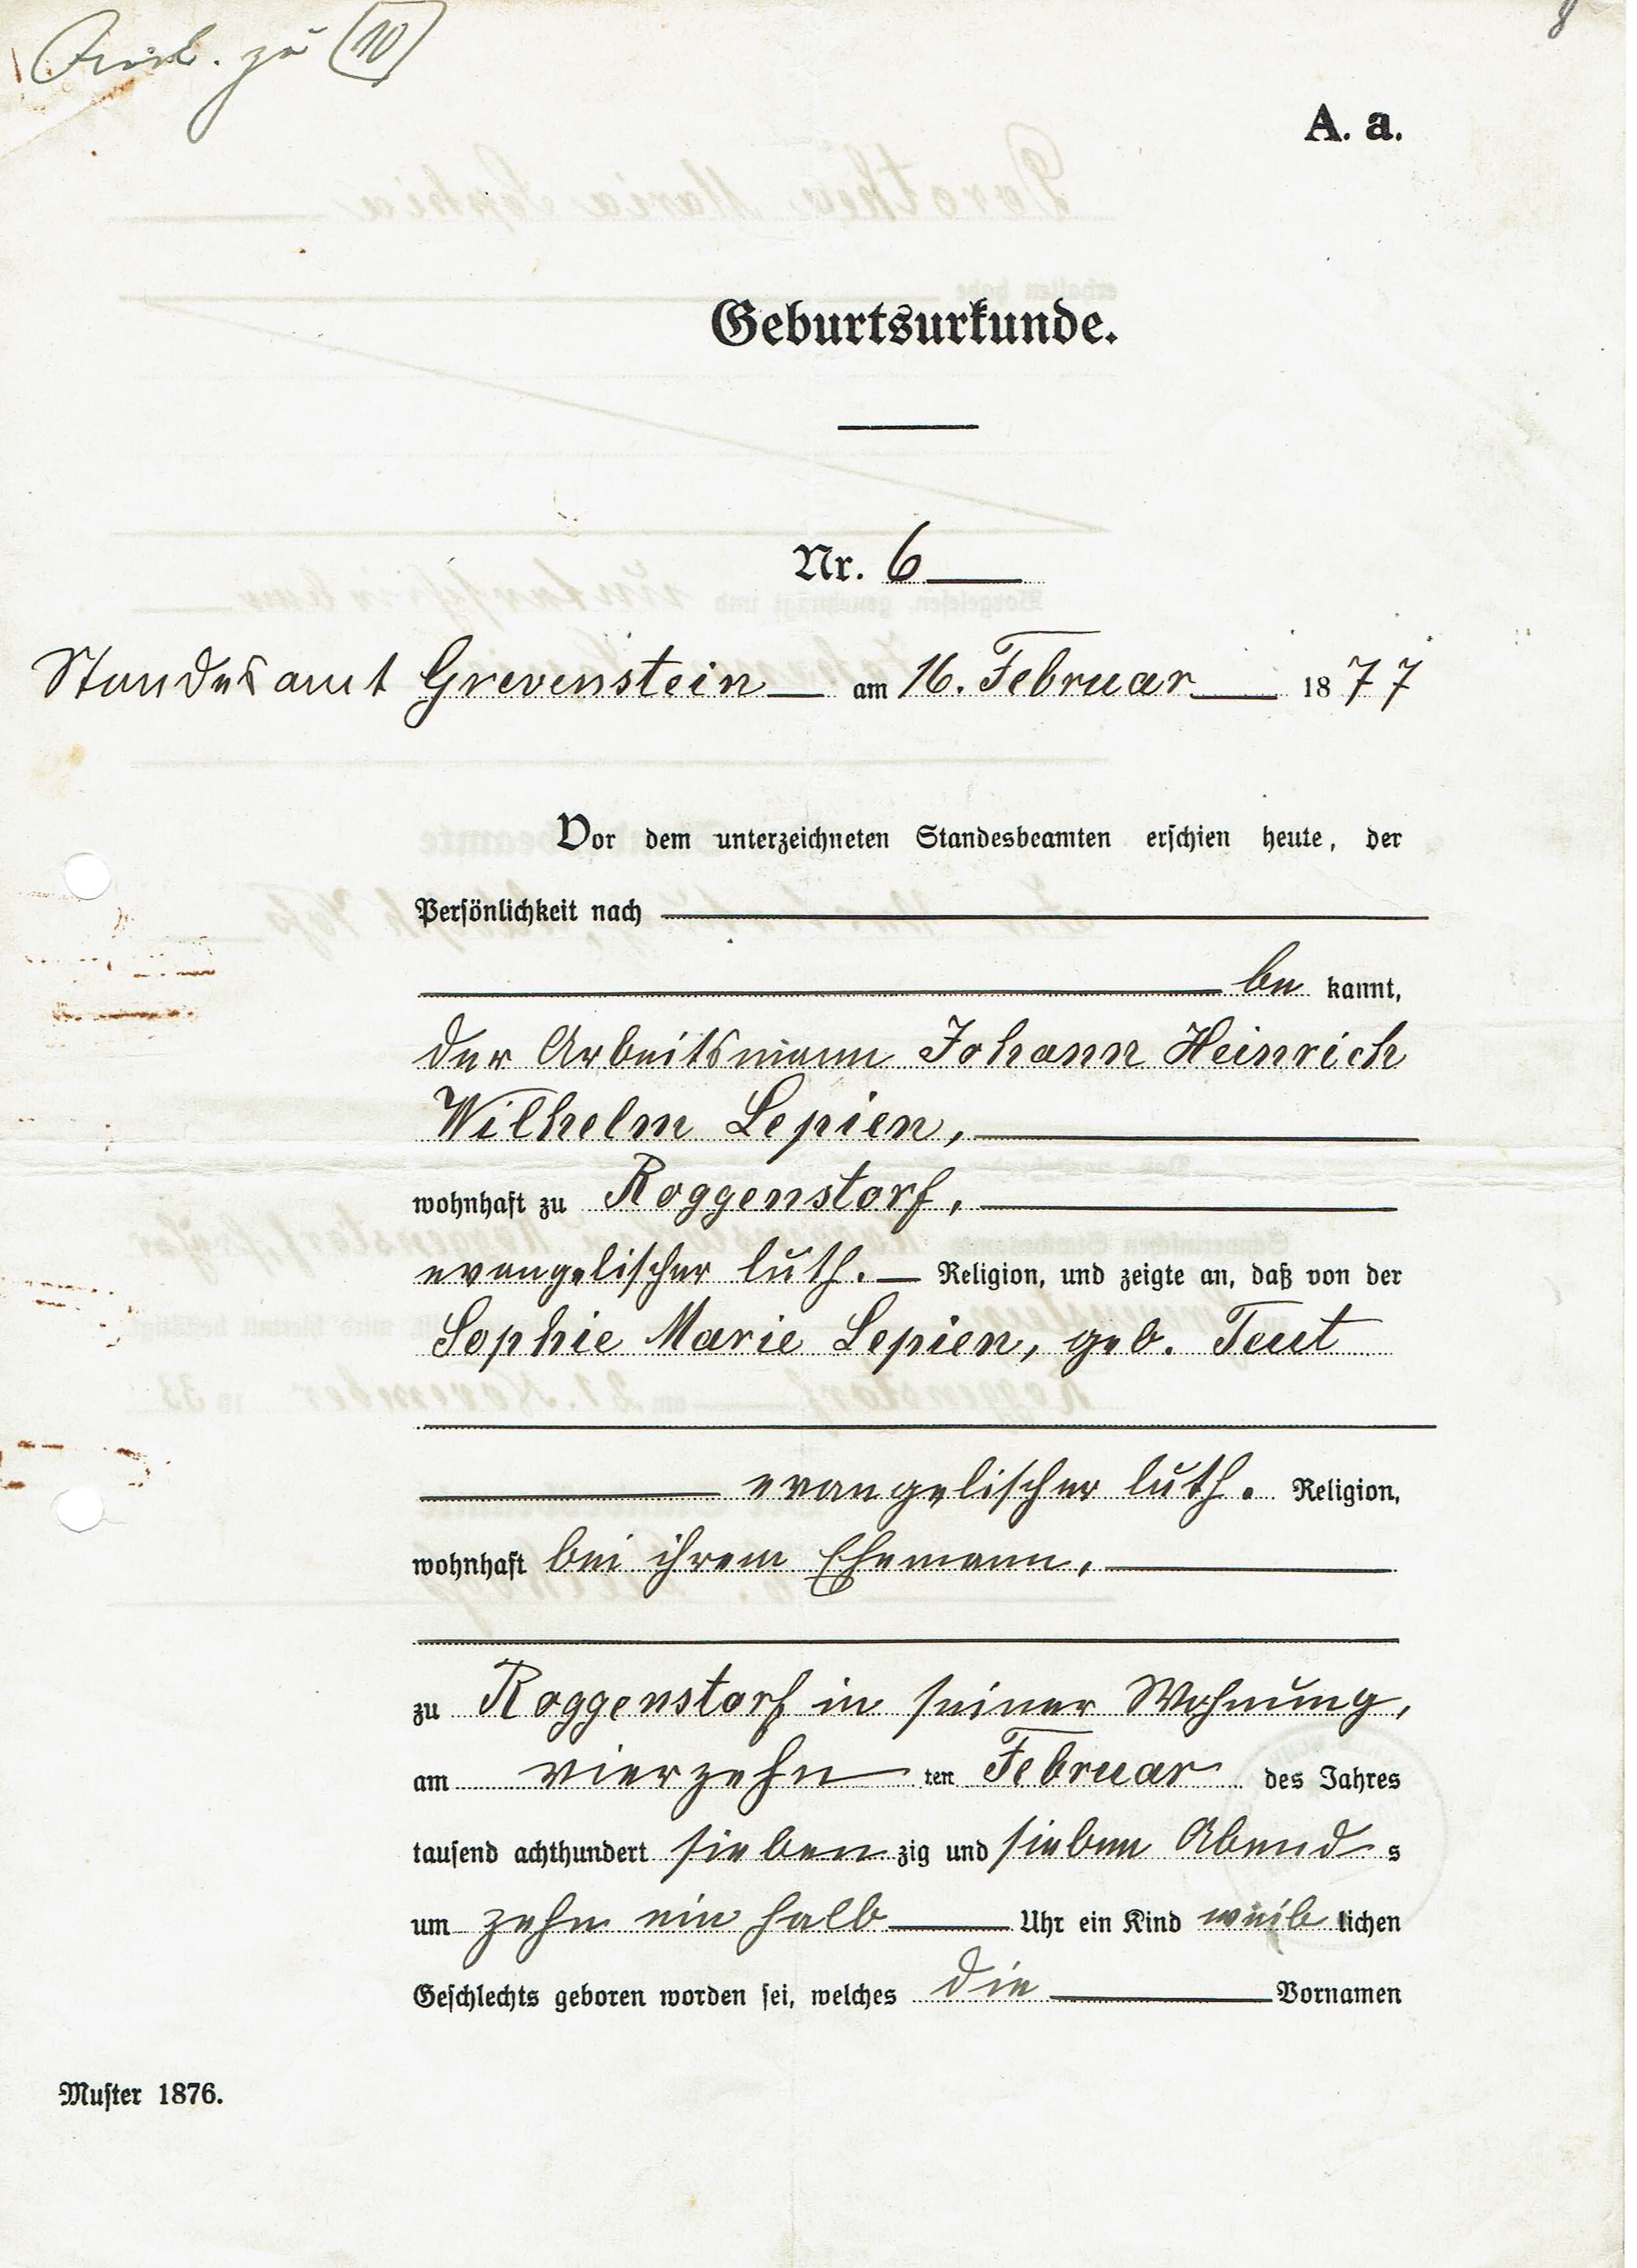 zu (10)
8
A. a.
Geburtsurkunde.
Nr. 6
Standesamt Grevenstein am 16. Februar 1877
Vor dem unterzeichneten Standesbeamten erschien heute, der
Persönlichkeit nach
be kannt,
der Arbeitsmann Johann Heinrich
Wilhelm Lepien,
wohnhaft zu Roggenstorf,
evangelischer luth. Religion, und zeigte an, daß von der
Sophie Marie Lepien, geb. Teut
evangelischer luth. Religion,
wohnhaft bei ihrem Ehemann,
zu Roggenstorf in seiner Wohnung,
am vierzehn ten Februar des Jahres
tausend achthundert sieben zig und sieben Abend s
um zehn ein halb Uhr ein Kind weib lichen
Geschlechts geboren worden sei, welches die Vornamen
Muster 1876.